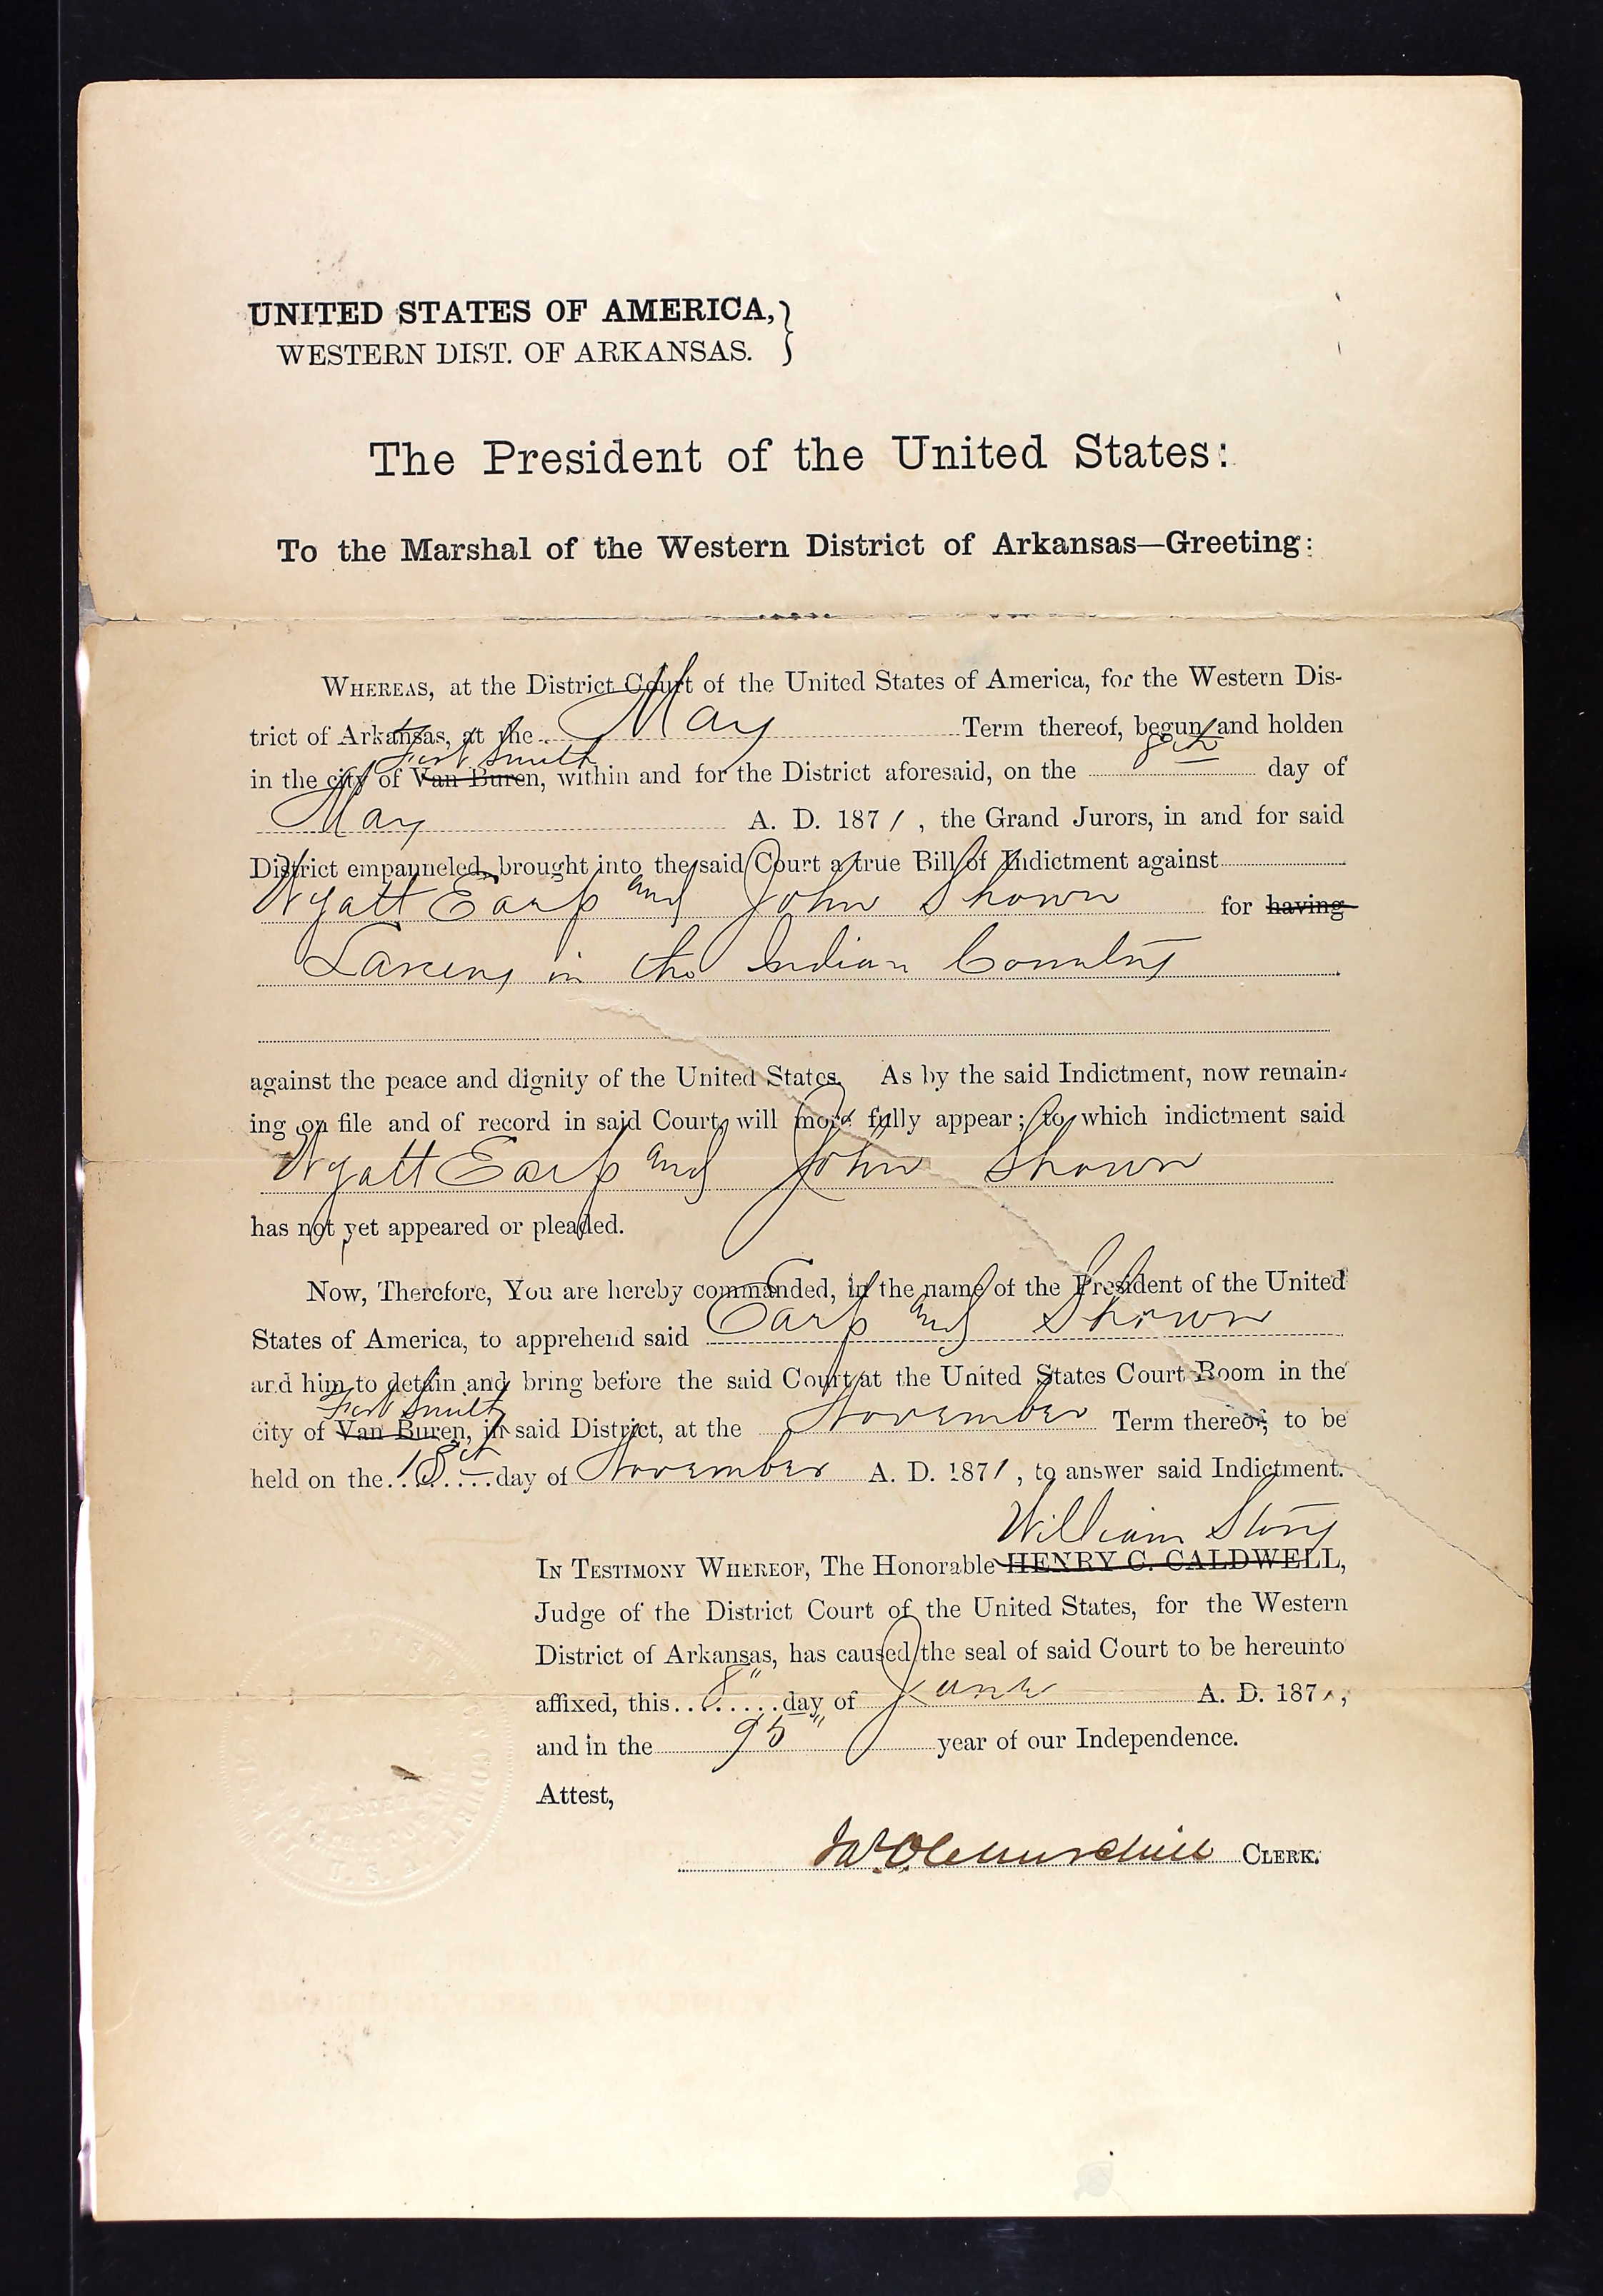 UNITED STATES OF AMERICA,}
WESTERN DIST. OF ARKANSAS.
The President of the United States:
To the Marshal of the Western District of Arkansas—Greeting:
WHEREAS, at the District Court of the United States of America, for the Western Dis-
trict of Arkansas, at the May Term thereof, begun and holden
Fort Smith
in the city of Van Buren, within and for the District aforesaid, on the 8th day of
May A. D. 1871, the Grand Jurors, in and for said
District empanneled, brought into the said Court a true Bill of Indictment against
Wyatt Earp and John Shown for having
Larceny in the Indian Country
against the peace and dignity of the United States. As by the said Indictment, now remain-
ing on file and of record in said Court, will more fully appear; to which indictment said
Wyatt Earp and John Shown
has not yet appeared or pleaded.
Now, Therefore, You are hereby commanded, in the name of the President of the United
States of America, to apprehend said Earp and Shown
and him to detain and bring before the said Court at the United States Court Room in the
Fort Smith
city of Van Buren, in said District, at the November Term thereof, to be
held on the 13th day of November A. D. 1871, to answer said Indictment.
William Story
IN TESTIMONY WHEREOF, The Honorable HENRY C. CALDWELL,
Judge of the District Court of the United States, for the Western
District of Arkansas, has caused the seal of said Court to be hereunto
affixed, this 8" day of June A. D. 1871,
and in the 95" year of our Independence.
Attest,
J. O. Churchill CLERK.